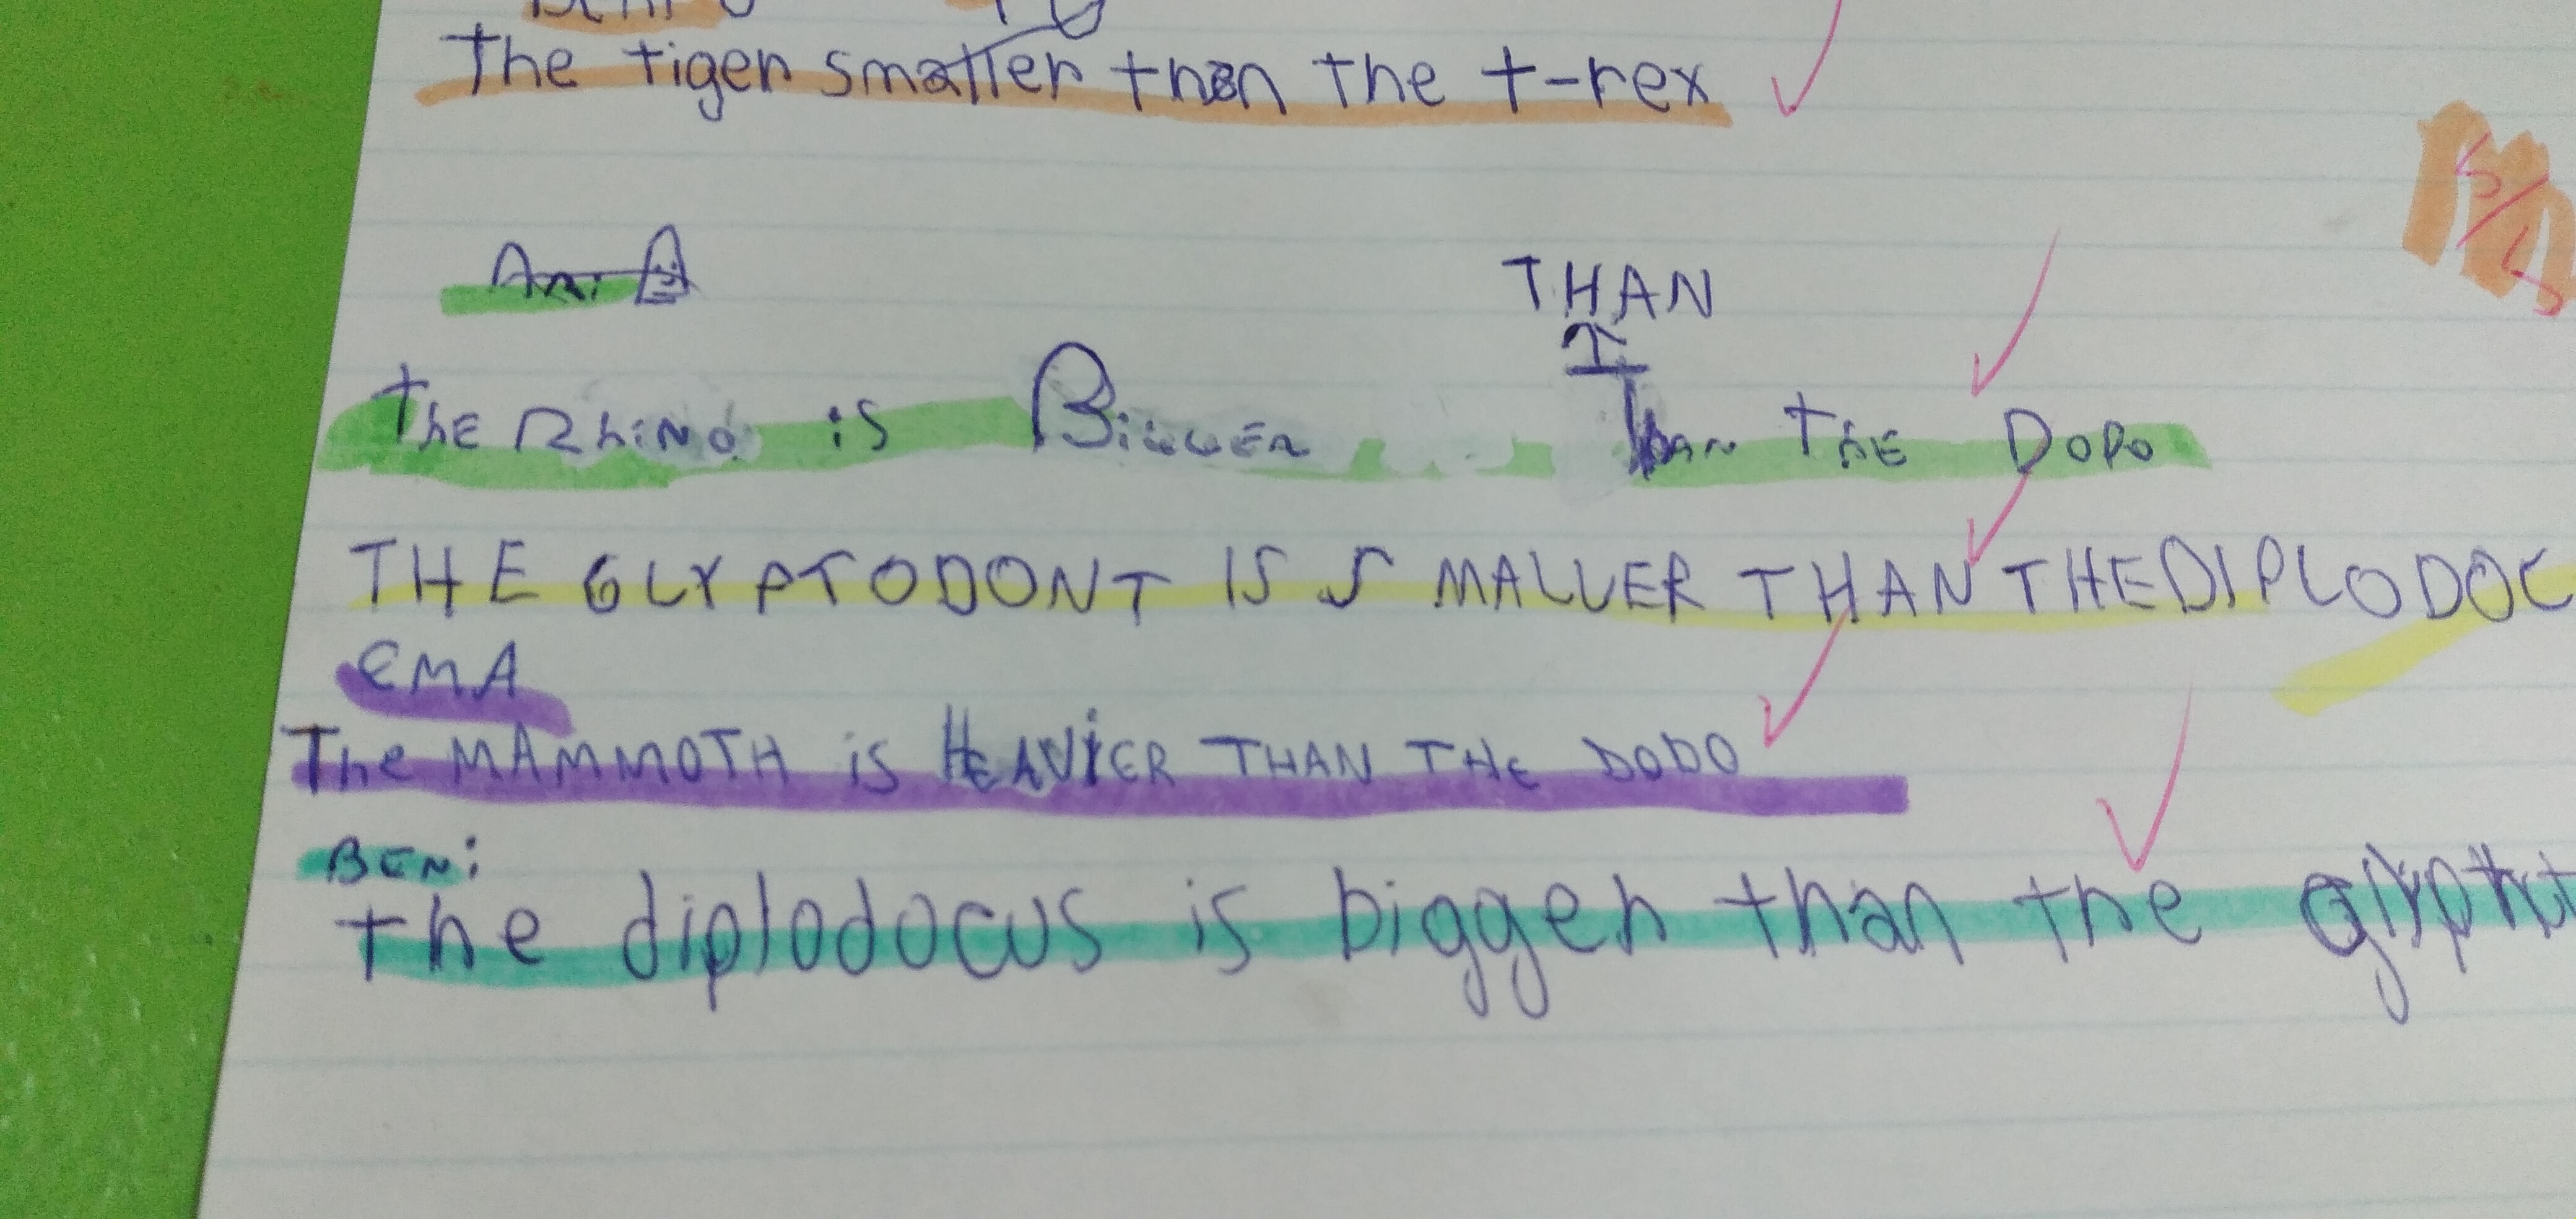 The tiger smaller than the t-rex
5/5
THAN
The Rhino is Bigger Than The Dodo
THE GLYPTODONT IS SMALLER THAN THE DIPLODOC
EMA
The MAMMOTH is HEAVIER THAN THE DODO
BEN:
the diplodocus is bigger than the